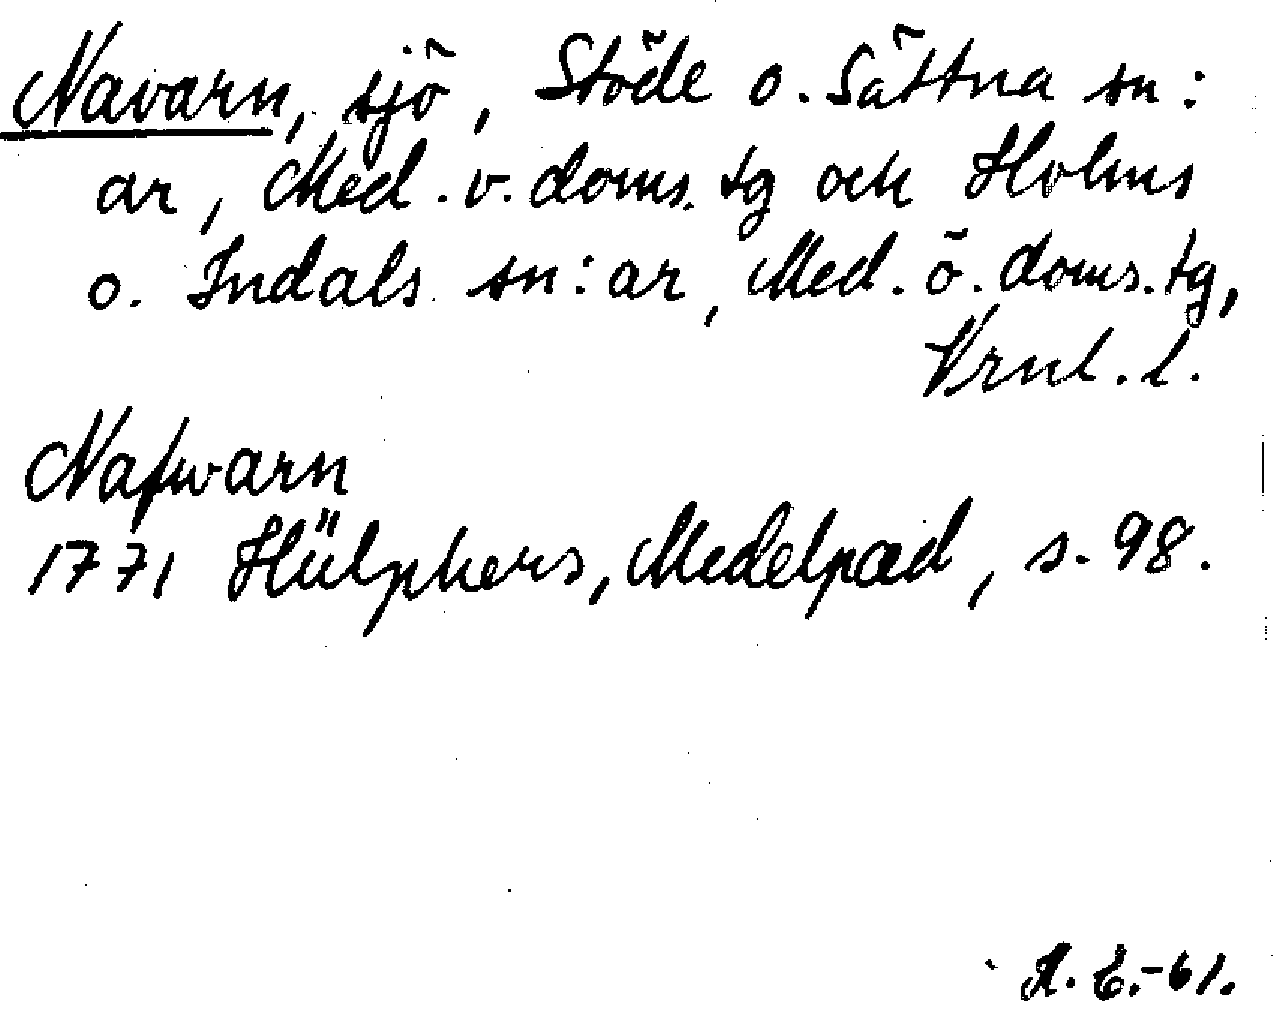 Navarn, sjö, Stöde o. Sättna sn:
ar, Med. v. doms. tg och Holms
o. Indals sn:ar, Med. ö. doms. tg,
Vrnl. l.
Nafwarn
1771 Hülphers, Medelpad, s. 98.
A. E.-61.